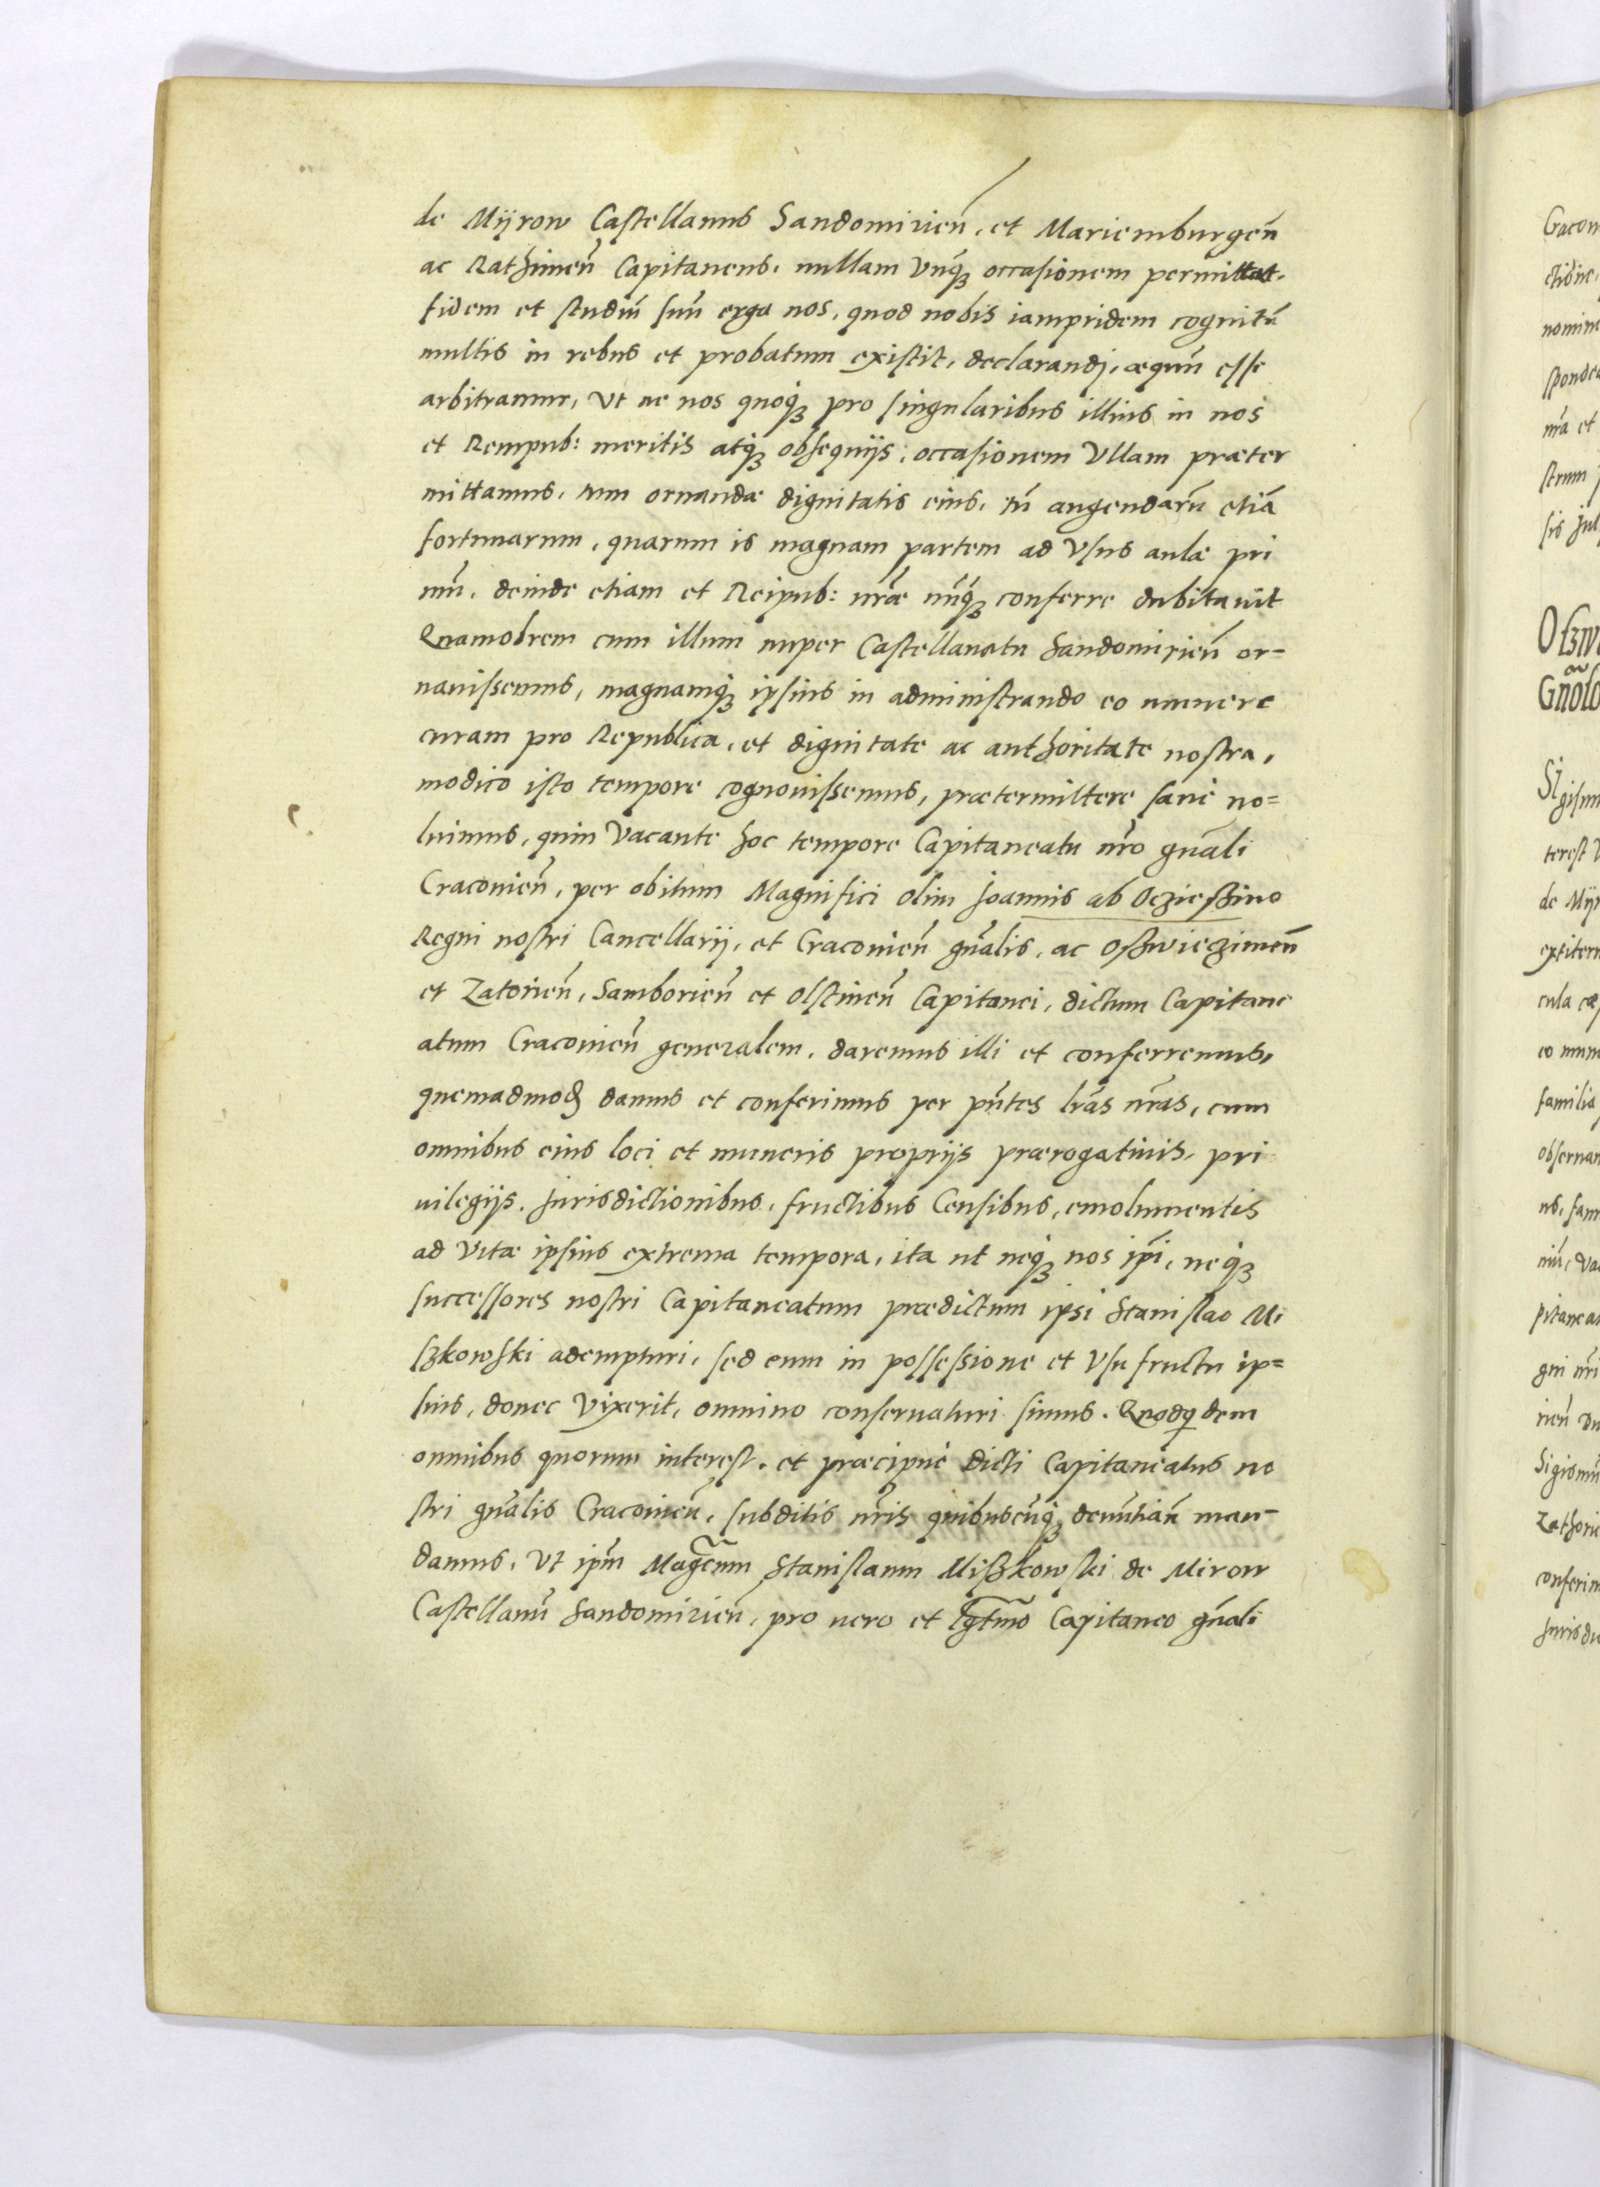 de Mÿrow Castellanus Sandomirień, et Mariemburgeń
ac Rathineń Capitaneus, nullam vnq̃ occasionem permittat,
fidem et studiũ suũ erga nos, quod nobis iampridem cognitũ
multis in rebus et probatum existit, declarandj, æquũ esse
arbitramur, vt ne nos quoq; pro singularibus illius in nos
et Rempub: meritis atq; obsequijs, occasionem vllam præter
mittamus, tum ornandæ dignitatis eius, tũ augendarũ etiã
fortunarum, quarum is magnam partem ad vsus aulæ pri
mũ, deinde etiam et Reipub: nr̃æ nũq; conferre dubitauit
Quamobrem cum illum nuper Castellanatu Sandomirień or=
nauissemus, magnamq; ipsius in administrando eo munere
curam pro Republica, et dignitate ac authoritate nostra,
modico isto tempore cognouissemus, prætermittere sane no=
luimus, quin vacante hoc tempore Capitaneatu nr̃o gñali
Cracouień, per obitum Magnifici olim Joannis ab Oczieszino
Regni nostri Cancellarij, et Cracouień gñalis, ac Oswieczimeń
et Zatorień, Samborień et Olstineń Capitanei, dictum Capitane
atum Cracouień generalem, daremus illi et conferremus,
quemadmod̃ damus et conferimus per pñtes lr̃as nr̃as, cum
omnibus eius loci et muneris proprijs prærogatiuis, pri
uilegijs, Jurisdictionibus, fructibus Censibus, emolumentis
ad vitæ ipsius extrema tempora, ita ut neq; nos ip̃i, neq;
successores nostri Capitaneatum prædictum ipsi Stanislao Mi
szkowski adempturi, sed eum in possessione et vsu fructu ip=
sius, donec vixerit, omnino conseruaturi simus. Quodq̃dem
omnibus quorum interest, et præcipue dicti Capitaneatus no
stri gñalis Cracouień, subditis nr̃is quibuscũq; denũtiañ man-
damus, vt ip̃m Mag̃cum Stanislaum Miszkowski de Mirow
Castellanũ Sandomirień, pro uero et lg̃tmo Capitaneo gñali